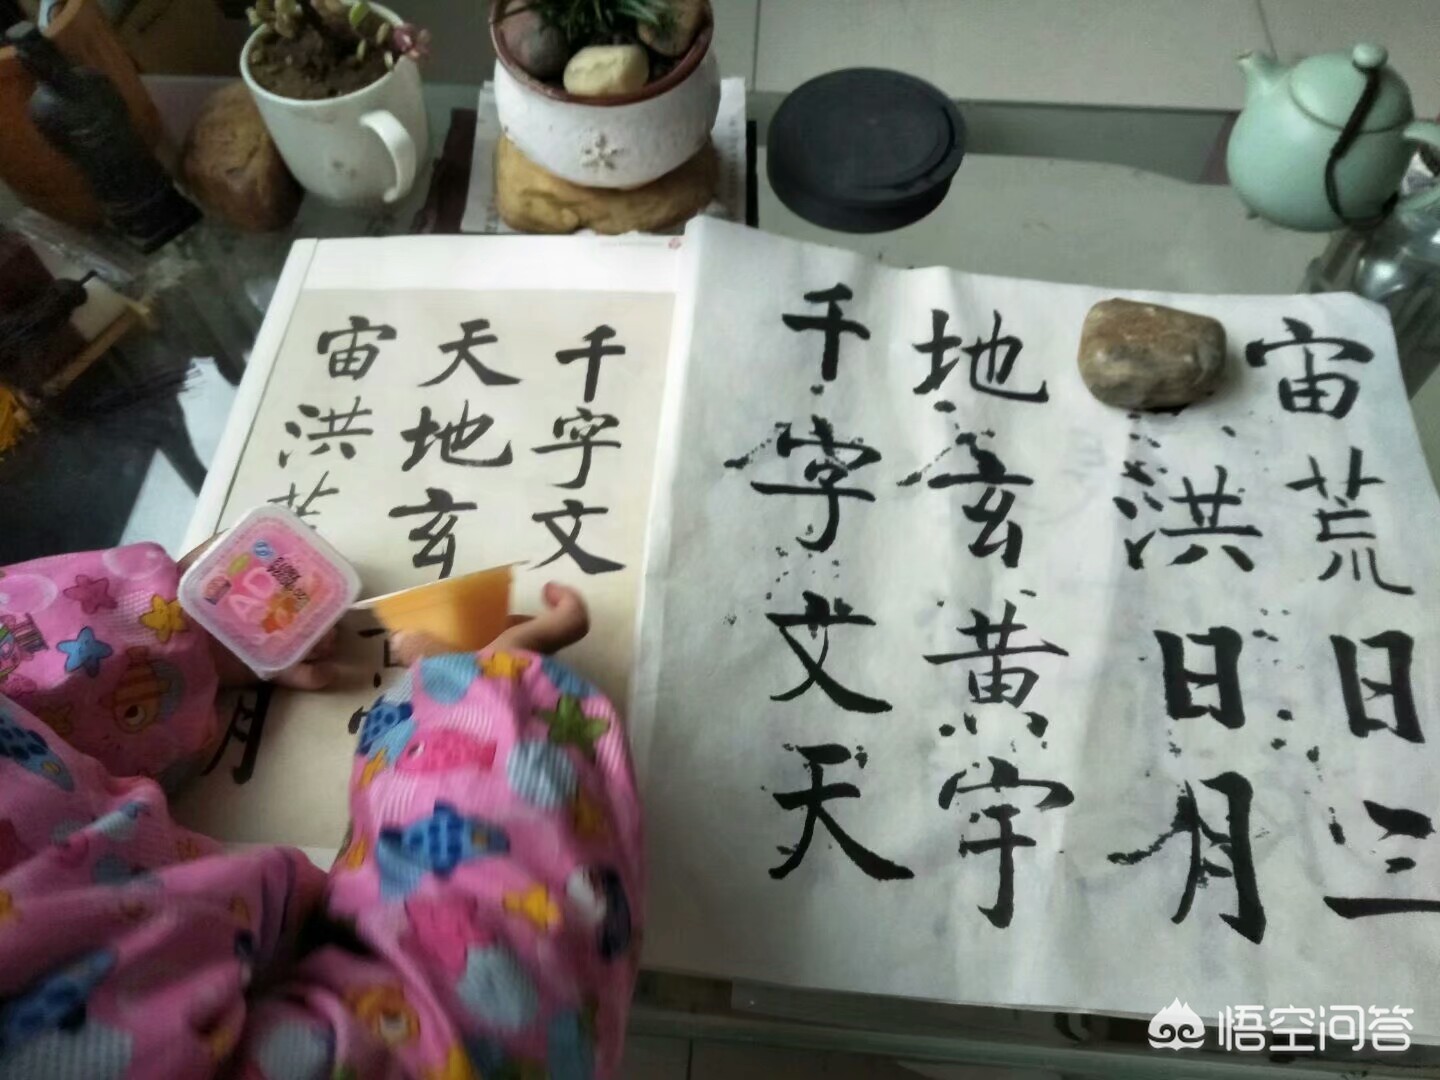 千字文
天地玄
宙洪荒
月
千字文天
地玄黄宇
洪日月
宙荒日三
AD
悟空问答